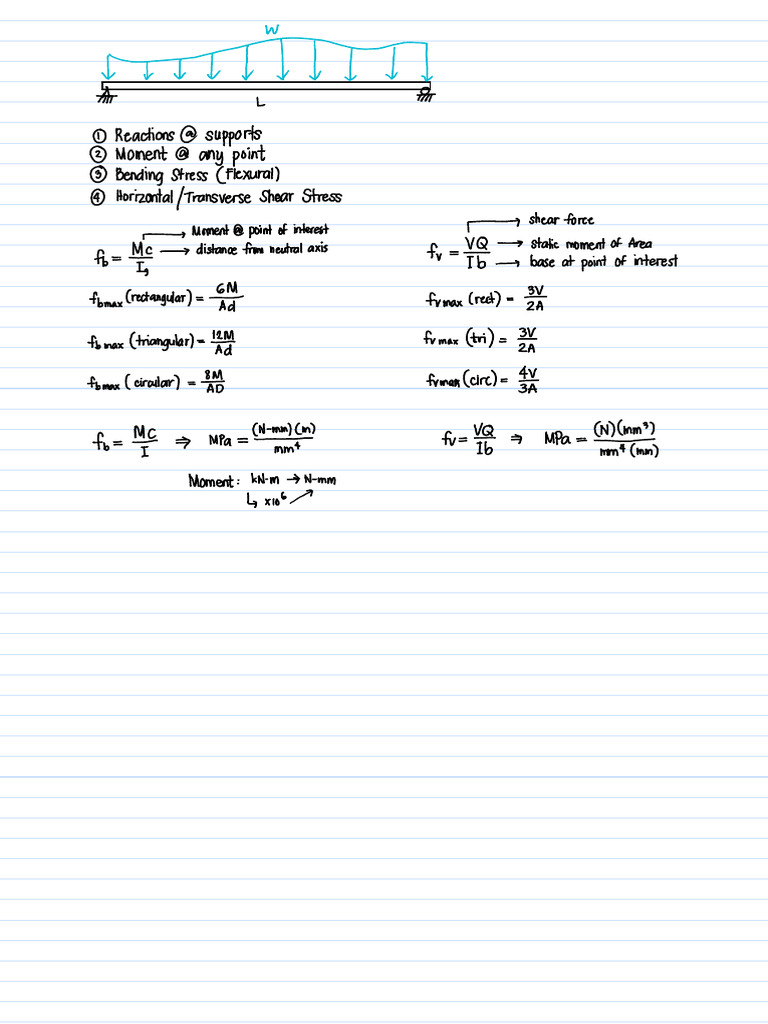 W
L
① Reactions @ supports
② Moment @ any point
③ Bending Stress (Flexural)
④ Horizontal/Transverse Shear Stress
fb = Mc/I → Moment @ point of interest → distance from neutral axis
fv = VQ/Ib → shear force → static moment of Area → base at point of interest
fbmax (rectangular) = 6M/Ad
fvmax (rect) = 3V/2A
fbmax (triangular) = 12M/Ad
fvmax (tri) = 3V/2A
fbmax (circular) = 8M/AD
fvmax (circ) = 4V/3A
fb = Mc/I ⇒ MPa = (N-mm)(m)/mm⁴
fv = VQ/Ib ⇒ MPa = (N)(mm³)/mm⁴(mm)
Moment: kN-m → N-mm
↳ x10⁶